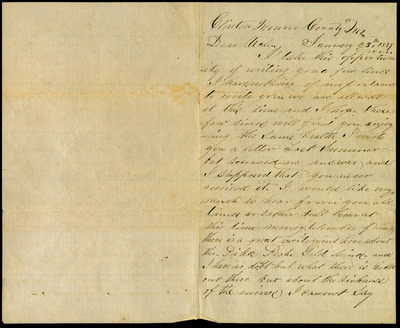 Clinton County Ind
Dear January 25th 1859
I take this opportun
ity of writing you a few lines
I have nothing of importance
to write we are all well
at this time and I hope these
few lines will find you enjoy
ing the same health I wrote
you a letter last Summer
but received no answer and
I supposed that you never
received it I would like very
much to hear from you all
times is rather dull here at
this time money
there is a great excitement here about
the Pikes Peake Gold Mines and
I have no dobt but what there is Gold
out there but about the richness
of the mines I cannot Say